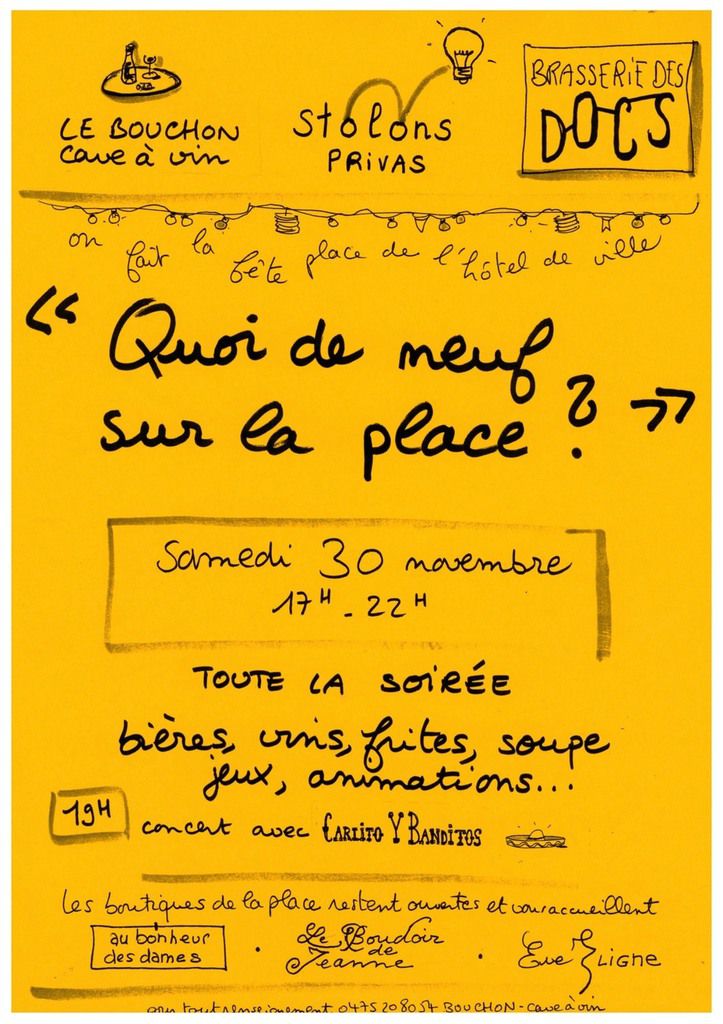 LE BOUCHON
cave à vin
Stolons
PRIVAS
BRASSERIE DES
DOCS
on fait la fête place de l'hôtel de ville
" Quoi de neuf
sur la place ? "
Samedi 30 novembre
17H - 22H
TOUTE LA SOIRÉE
bières, vins, frites, soupe
jeux, animations...
19H concert avec CARLITO Y BANDITOS
Les boutiques de la place restent ouvertes et vous accueillent
au bonheur
des dames
. Le Boudoir
de
Jeanne
. Eve LIGNE
tout renseignement 0475208054 BOUCHON - cave à vin